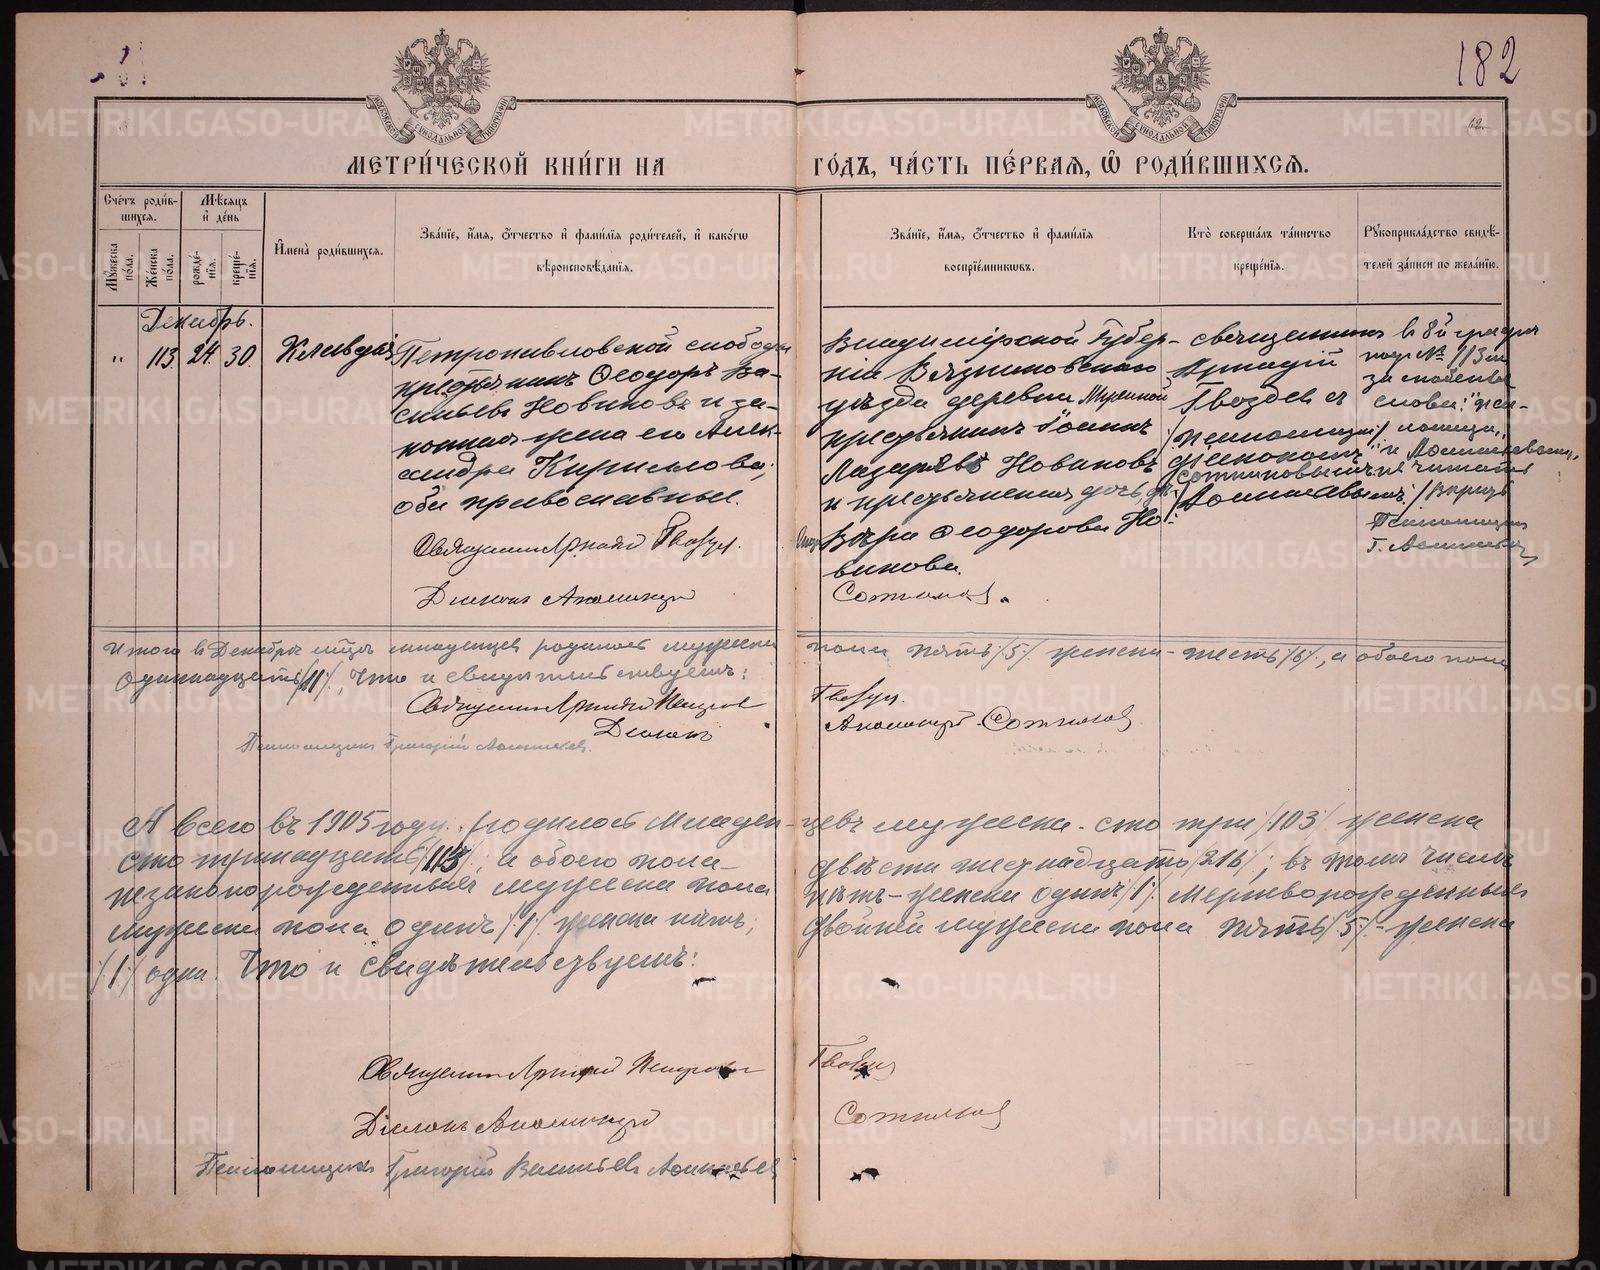 182
МЕТРИ́ЧЕСКОЙ КНИ́ГИ НА ГО́ДЪ, ЧА́СТЬ ПЕ́РВАЯ, Ѡ҆ РОДИ́ВШИХСЯ.
Сче́тъ роди́вшихся.
Мѣ́сяцъ и҆ де́нь
Мꙋ́жеска по́ла.
Же́нска по́ла.
рожде́нїя.
креще́нїя.
И҆мена̀ роди́вшихся.
Зва́нїе, и҆́мя, ѻ҆́тчество и҆ фами́лїя роди́телей, и҆ како́гѡ
вѣроисповѣ́данїя.
Зва́нїе, и҆́мя, ѻ҆́тчество и҆ фами́лїя
воспрїе́мникѡвъ.
Кто̀ соверша́лъ та́инство
креще́нїя.
Рꙋкоприкла́дство свидѣ́-
телей за́писи по жела́нїю.
Декабрь.
"
113.
24.
30.
Клавдія
Петропавловской слободы
крестьянинъ Ѳеодоръ Ва-
сильевъ Новиковъ и за-
конная жена его Алек-
сандра Кириллова;
оба православные.
Священникъ Аркадій Гвоздев.
Діаконъ Александр
Владимірской Губер-
ніи Вязниковскаго
уѣзда деревни
крестьянинъ Іоаннъ
Лазаревъ Новиковъ
и крестьянская дочь дѣ-
Вѣра Ѳеодорова Но-
викова.
Сотников.
священникъ
Аркадій
Гвоздев съ
псаломщик
діакономъ
Сотниковымъ и
в 8й графѣ
под № 113 м
за
слова: "
Псаломщикъ
Г.
Итого въ Декабрѣ м-цѣ младенцев родилось мужеска пола пять /5/ женска - шесть /6/, а обоего пола
одиннадцать /11/, что и свидѣтельствуемъ:
Священникъ Аркадій Петров Гвоздев.
Діаконъ Александр Сотников
Псаломщикъ Григорій
А всего въ 1905 году родилось младен-цевъ мужеска - сто три /103/ женска
сто тринадцать /113/; а обоего пола двѣсти шестнадцать /216/; въ томъ числѣ
незаконорожденныхъ мужеска пола пять - женска одинъ /1/. Мертворожденныхъ
мужеска пола одинъ /1/. женска пять; двойней мужеска пола пять /5/ - женска
/1/ одна. Что и свидѣтельствуемъ:
Священникъ Аркадій Петровъ Гвоздев
Діаконъ Александр Сотников
Псаломщикъ Григорій Васильевъ
METRIKI.GASO-URAL.RU